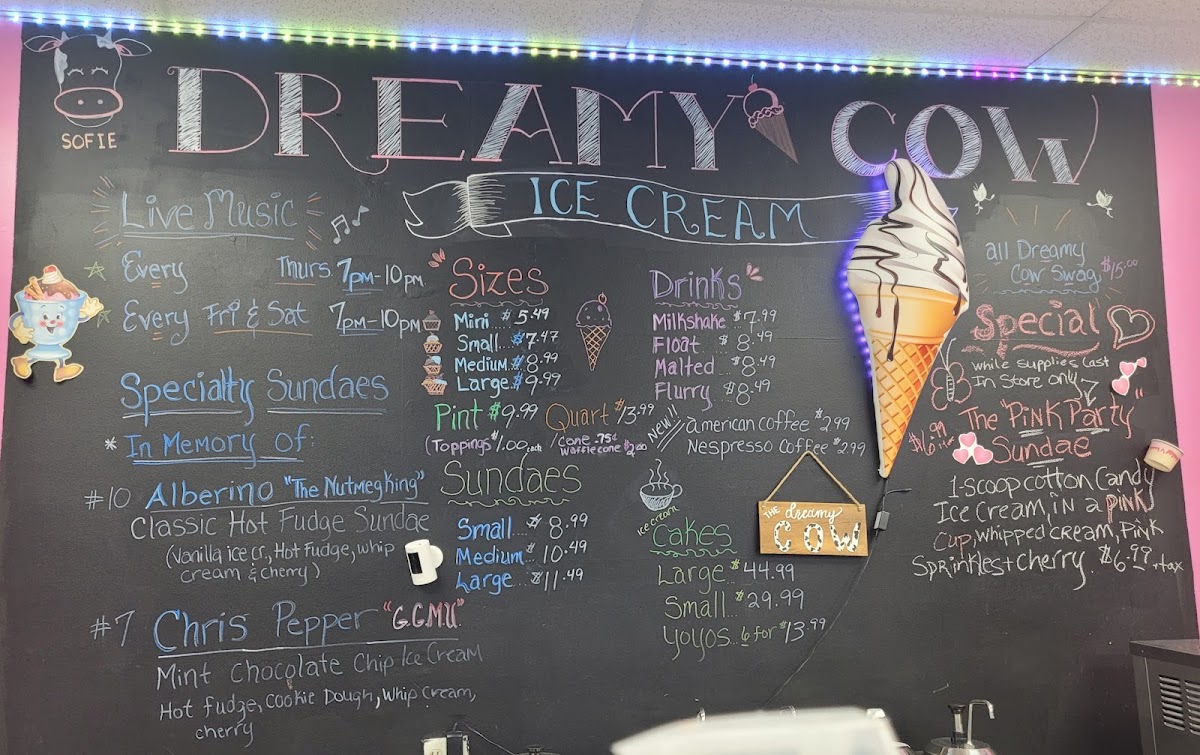 SOFIE
DREAMY COW
ICE CREAM
Live Music
Every Thurs 7pm-10pm
Every Fri & Sat 7pm-10pm
Specialty Sundaes
* In Memory of:
#10 Alberino "The Nutmeg King"
Classic Hot Fudge Sundae
(Vanilla ice cr, Hot Fudge, whip
cream & cherry)
#7 Chris Pepper "G.G.M.U."
Mint Chocolate Chip Ice Cream
Hot fudge, Cookie Dough, Whip Cream,
cherry
Sizes
Mini $5.49
Small... $7.47
Medium $8.99
Large $9.99
Pint $9.99 Quart $13.99
(Toppings $1.00 each / Cone .75¢
Waffle cone $2.00
Sundaes
Small $8.99
Medium $10.49
Large... $11.49
Drinks
Milkshake $7.99
Float $8.49
Malted $8.49
Flurry $8.49
NEW!! American coffee $2.99
Nespresso Coffee $2.99
Ice cream
Cakes
Large... $44.99
Small... $29.99
Yoyos.. 6 for $13.99
THE dreamy
COW
all Dreamy
Cow Swag $15.00
Special
while supplies last
In Store only
The "Pink Party"
Sundae
1-scoop cotton Candy
Ice Cream, in a pink
Cup, whipped cream, Pink
Sprinkles + cherry. $6.99 + tax